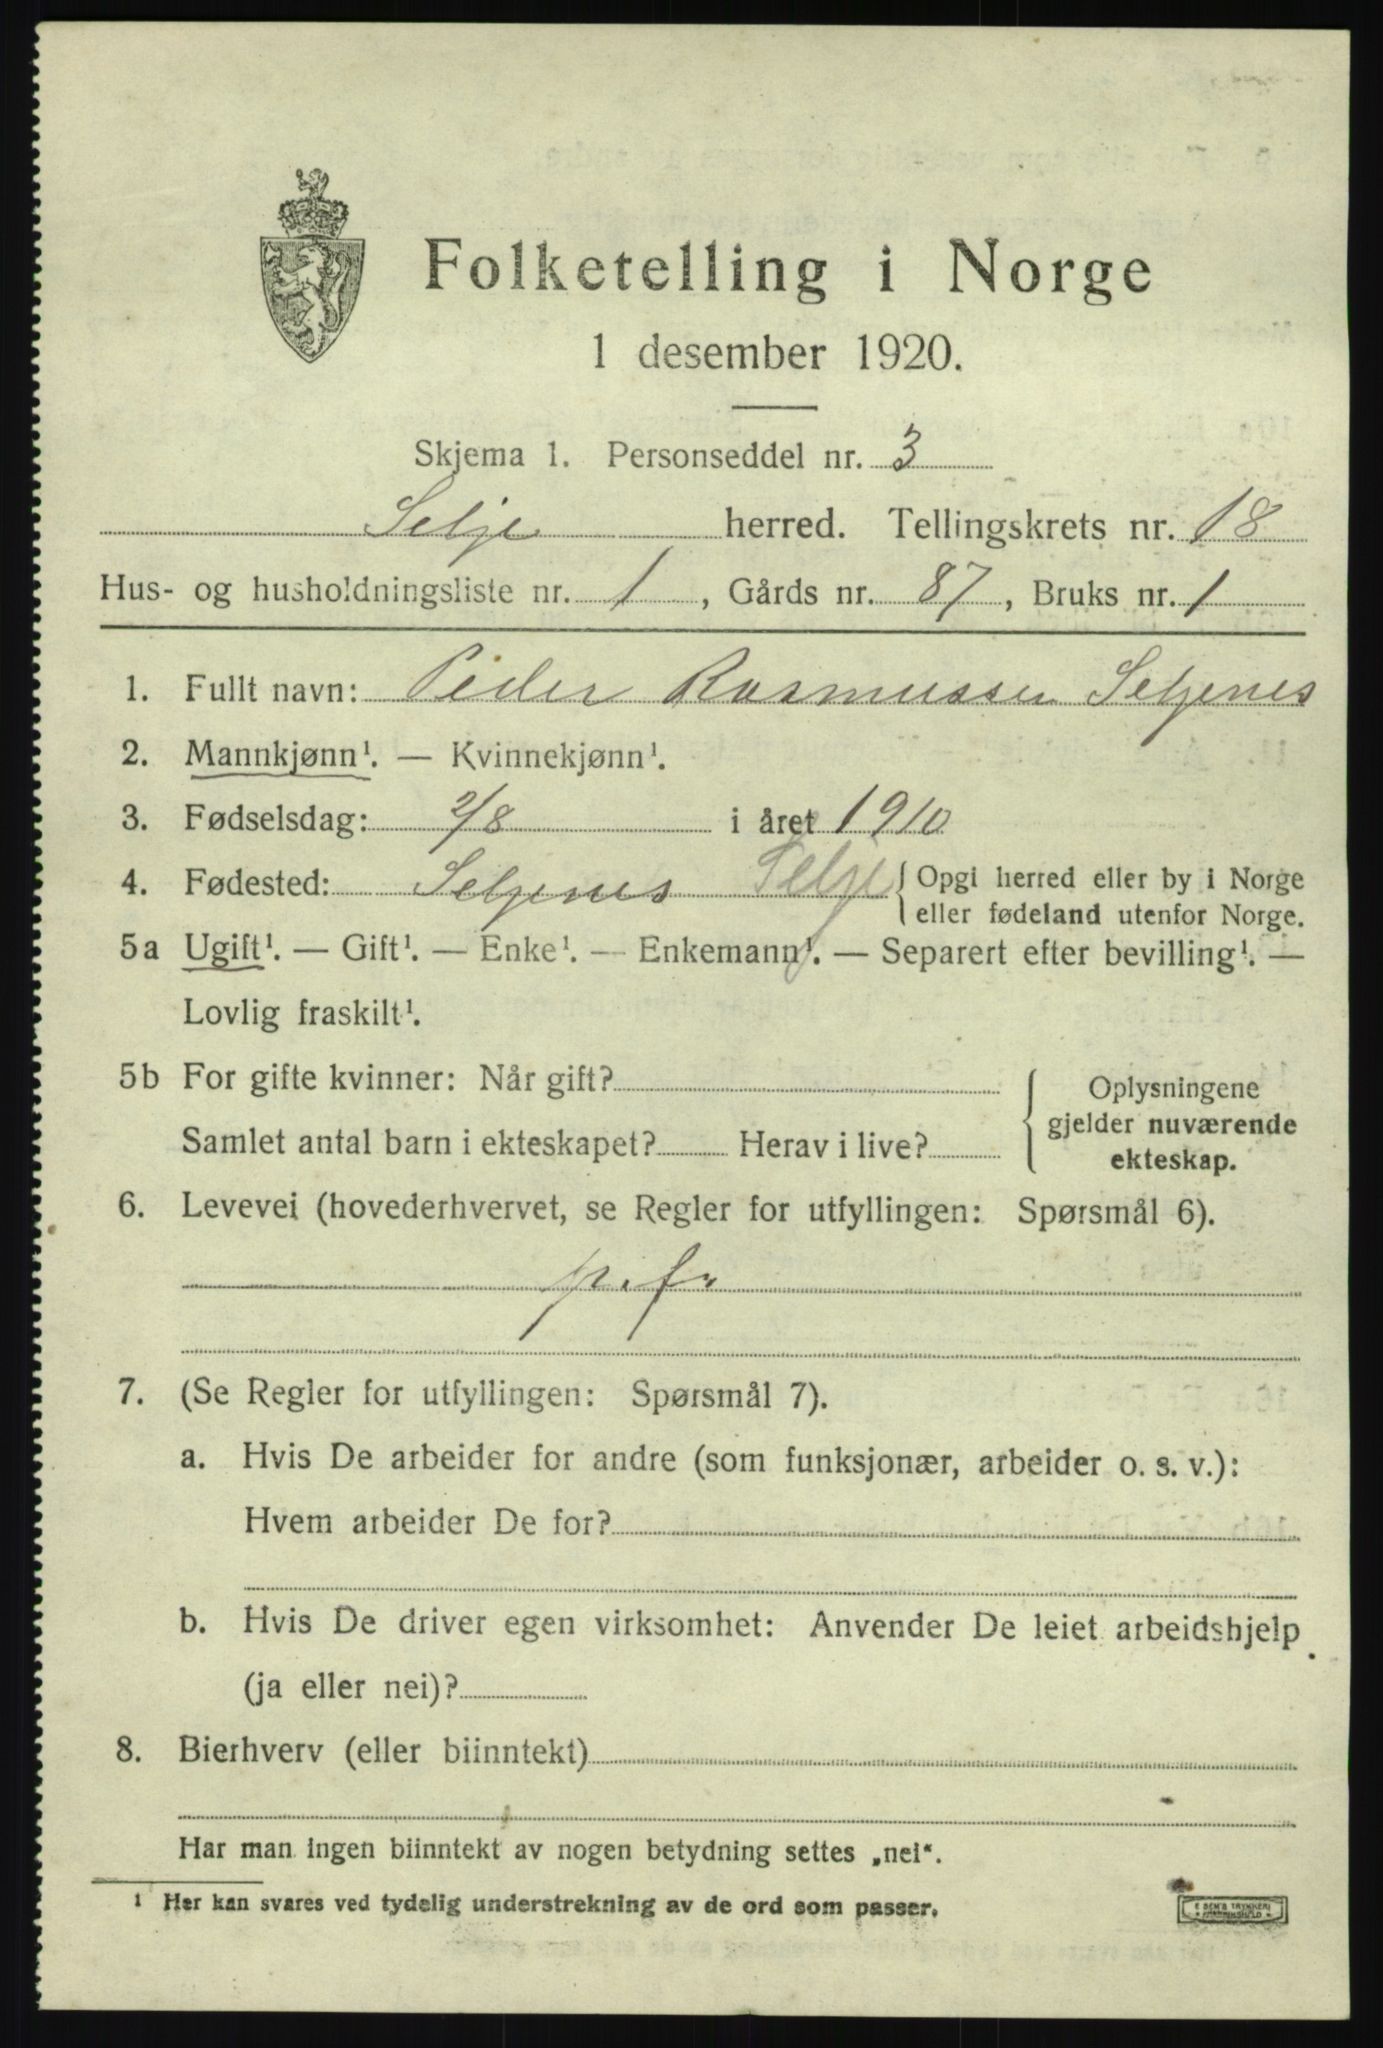 Folketelling i Norge
1 desember 1920.
Skjema 1. Personseddel nr. 3
Selje herred. Tellingskrets nr. 18
Hus- og husholdningsliste nr. 1, Gårds nr. 87, Bruks nr. 1
1. Fullt navn: Peder Rasmussen Seljenes
2. Mannkjønn¹. — Kvinnekjønn¹.
3. Fødselsdag: 2/8 i året 1910
4. Fødested: Seljenes Selje { Opgi herred eller by i Norge
eller fødeland utenfor Norge.
5a Ugift¹. — Gift¹. — Enke¹. — Enkemann¹. — Separert efter bevilling¹. —
Lovlig fraskilt¹.
5b For gifte kvinner: Når gift? { Oplysningene
gjelder nuværende
Samlet antal barn i ekteskapet? Herav i live?
ekteskap.
6. Levevei (hovederhvervet, se Regler for utfyllingen: Spørsmål 6).
p. f.
7. (Se Regler for utfyllingen: Spørsmål 7).
a. Hvis De arbeider for andre (som funksjonær, arbeider o. s. v.):
Hvem arbeider De for?
b. Hvis De driver egen virksomhet: Anvender De leiet arbeidshjelp
(ja eller nei)?
8. Bierhverv (eller biinntekt)
Har man ingen biinntekt av nogen betydning settes „nei“.
¹ Her kan svares ved tydelig understrekning av de ord som passer.